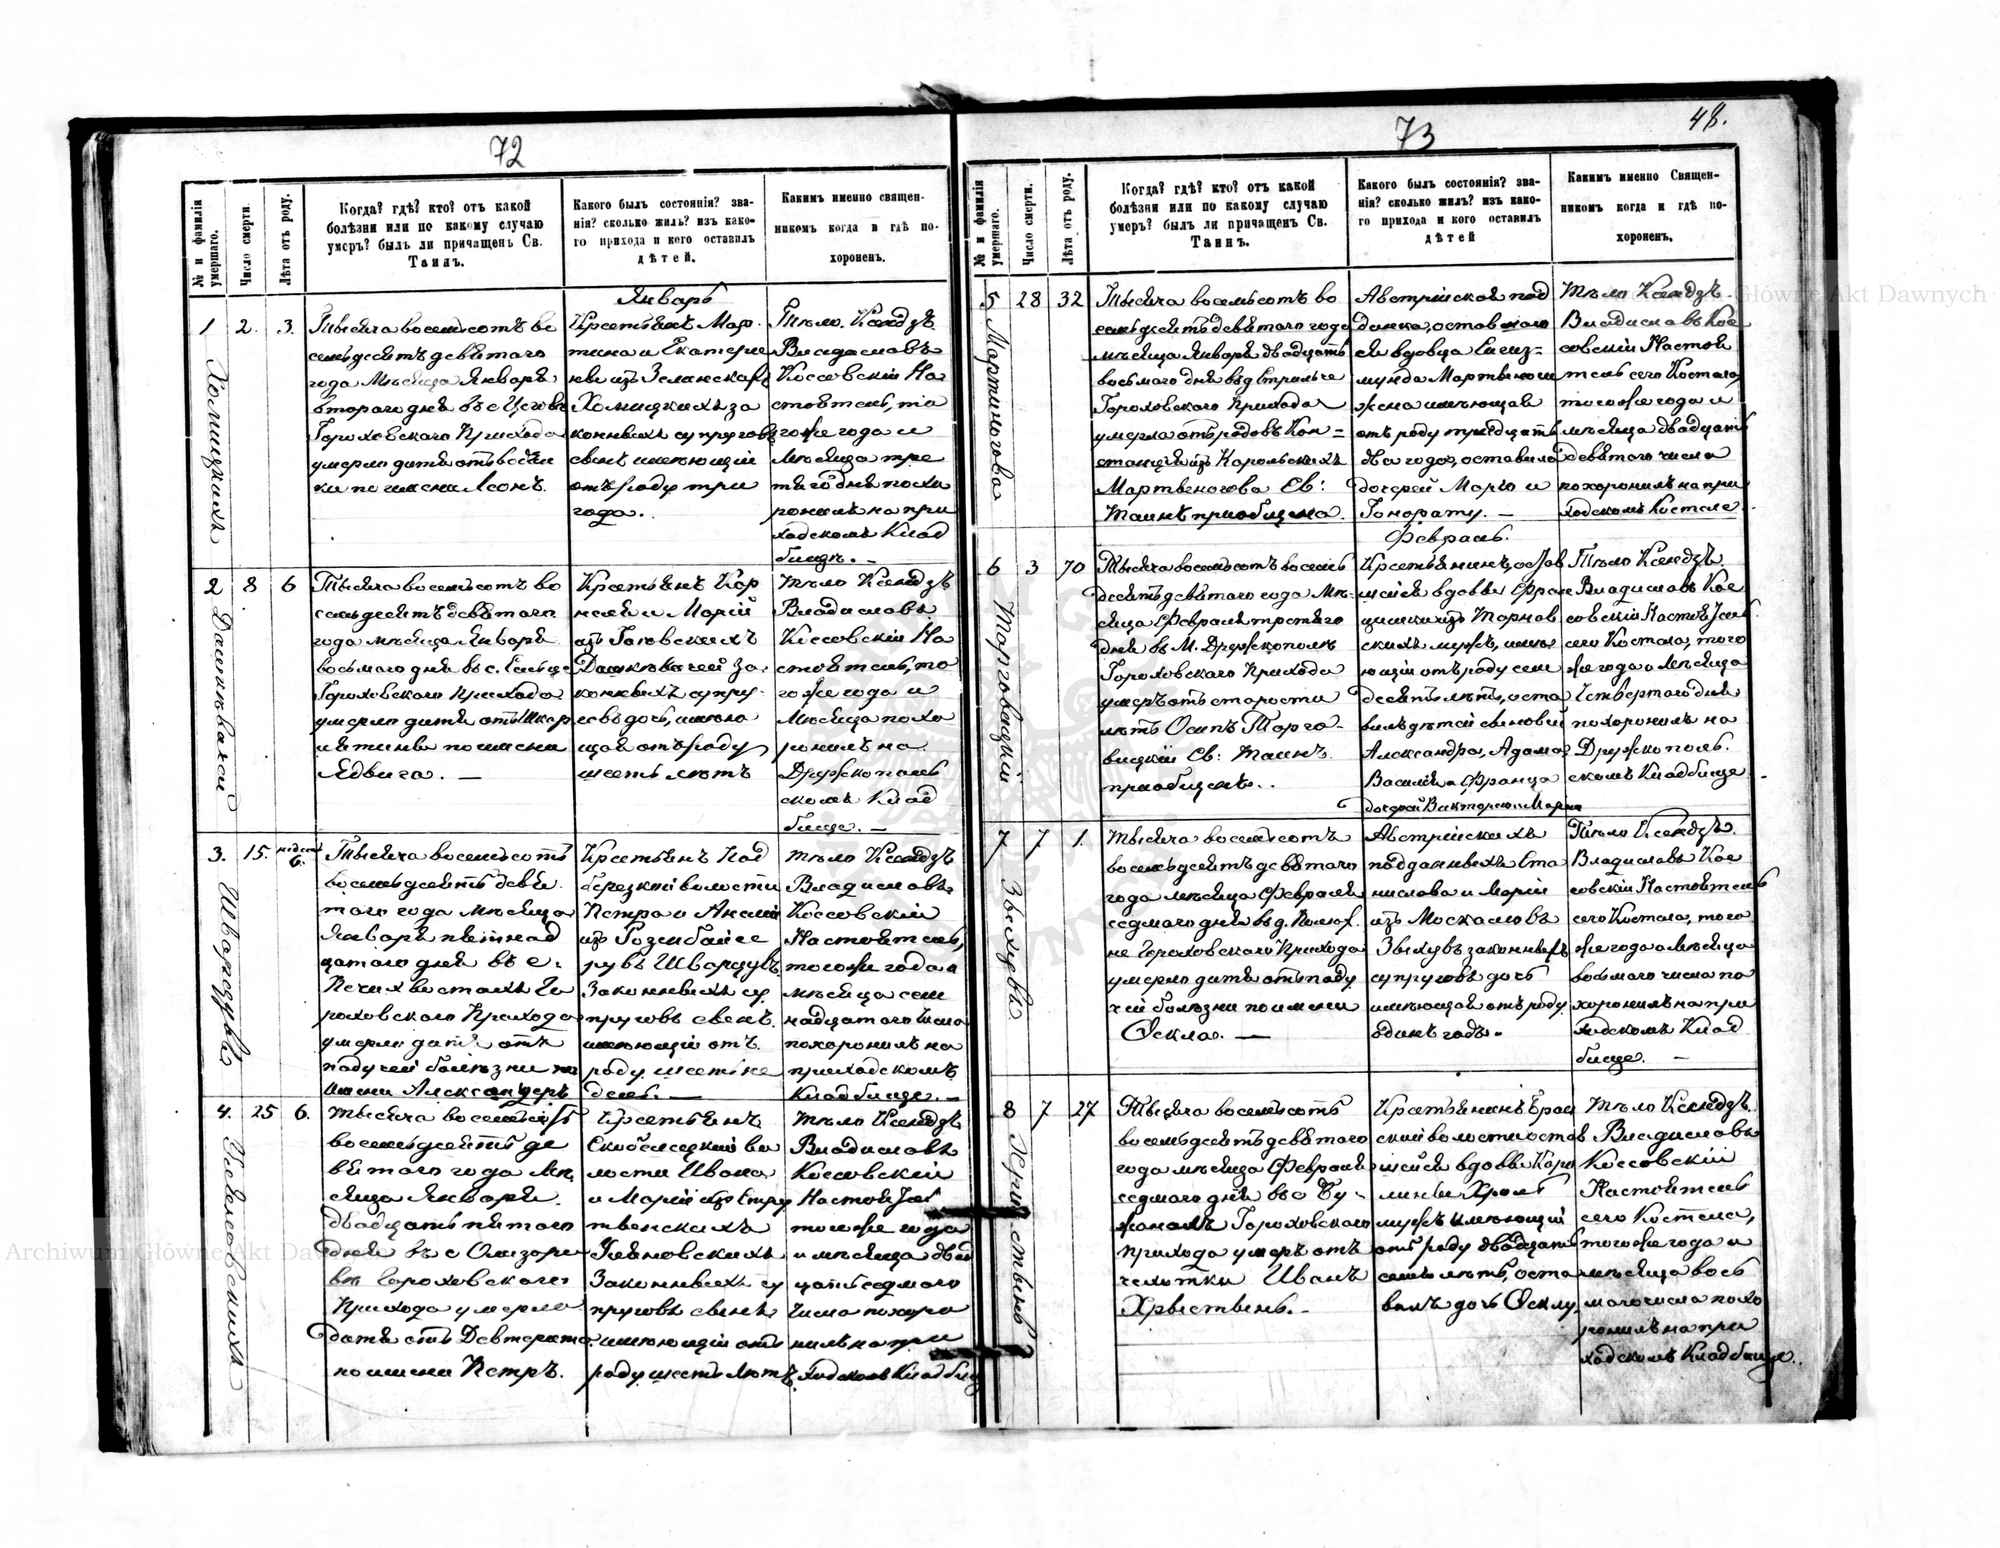 72
№ и фамилія умершаго.
Число смерти.
Лѣта отъ роду.
Когда? гдѣ? кто? отъ какой
болѣзни или по какому случаю
умеръ? былъ ли причащенъ Св.
Таинъ.
Какого былъ состоянія? зва-
нія? сколько жилъ? изъ како-
го прихода и кого оставилъ
дѣтей.
Какимъ именно священ-
никомъ когда и гдѣ по-
хороненъ.
Январь
1
Хомицкихъ
2.
3.
Тысяча восемьсотъ во
семьдесятъ девятаго
года Мѣсяца Января
втораго дня въ с
Гороховскаго Прихода
умерло дитя отъ
ки по имени Леонъ.
Крестьянъ Мар-
тина и Екатери
ны изъ
Хомицкихъ за
конныхъ супруговъ
сынъ имѣющій
отъ роду три
года.
Тѣло Ксендзъ
Владиславъ
Коссовскій На
стоятель, то
гоже года и
Мѣсяца тре
тяго дня похо
ронилъ на при
ходскомъ Клад
бищѣ. —
2
8
6
Тысяча восемьсотъ во
семьдесятъ девятаго
года мѣсяца Января
восьмаго дня въ с.
Гороховскаго Прихода
умерло дитя отъ Шкар
лятины по имени
Ядвига. —
Крестьянъ Кор
нелія и Маріи
изъ
за
конныхъ супру-
говъ дочь, имѣю
щая отъ роду
шесть лѣтъ
Тѣло Ксендзъ
Владиславъ
Коссовскій На
стоятель, то
гоже года и
Мѣсяца похо
ронилъ на
Дружкополь
скомъ Клад
бище. —
3.
Шварцувъ
15.
6.
Тысяча восемьсотъ
восемьдесятъ девя
таго года Мѣсяца
Января пятнад
цатаго дня въ с.
Печихвостахъ Го
роховскаго Прихода
умерло дитя отъ
падучей болѣзни по
имени Александеръ
Крестьянъ Над
березкой волости
Петра и
изъ
Шварцувъ
Законныхъ су
пруговъ сынъ
имѣющій отъ
роду шесть не
дель. —
Тѣло Ксендзъ
Владиславъ
Коссовскій
Настоятель,
тогоже года и
мѣсяца сем
надцатаго числа
похоронилъ на
приходскомъ
Кладбище. —
4.
25
6.
Тысяча восемьсотъ
восемьдесятъ де
вятаго года Мѣ
сяца Января
двадцать пятаго
дня въ с
Гороховскаго
Прихода умерло
дитя отъ Дифтерита
по имени Петръ.
Крестьянъ
Скобелецкой во
лости Ивана
и Маріи изъ
Законныхъ су
пруговъ сынъ
имѣющій отъ
роду шесть лѣтъ
Тѣло Ксендзъ
Владиславъ
Коссовскій
Настоятель
тогоже года
и мѣсяца двад
цать седмаго
числа похоро
нилъ на при
ходскомъ Кладбищ
73
48.
№ и фамилія умершаго.
Число смерти.
Лѣта отъ роду.
Когда? гдѣ? кто? отъ какой
болѣзни или по какому случаю
умеръ? былъ ли причащенъ Св.
Таинъ.
Какого былъ состоянія? зва-
нія? сколько жилъ? изъ како-
го прихода и кого оставилъ
дѣтей
Какимъ именно Священ-
никомъ когда и гдѣ по-
хороненъ.
5
Мартыногова
28
32
Тысяча восемьсотъ во
семьдесятъ девятаго года
мѣсяца Января двадцать
восьмаго дня въ д
Гороховскаго Прихода
умерла отъ родовъ Кон-
станція изъ Карольскихъ
Мартыногова Св:
Таинъ приобщена.
Австрійская под
данка, оставшаго
ся вдовца Сигиз-
мунда
жена имѣющая
отъ роду тридцать
два года, оставила
дочерей Марію и
Гонорату. —
Тѣло Ксендзъ
Владиславъ Кос
совскій Настоя
тель сего Костела,
тогоже года и
мѣсяца двадцать
девятаго числа
похоронилъ на при
ходскомъ Костеле.
Февраль.
6
Торговицкій
3
70
Тысяча восемьсотъ восемь
десятъ девятаго года Мѣ-
сяца Февраля третяго
дня въ М. Дружкополѣ
Гороховскаго Прихода
умеръ отъ старости
лѣтъ Осипъ Торго-
вицкій Св: Таинъ
приобщенъ.
Крестьянинъ, остав
шейся вдовы Фран
цишки изъ Тарнов
скихъ мужъ, имѣ
ющій отъ роду сем
десять лѣтъ, оста
вилъ дѣтей сыновей
Александра, Адама,
Василія и Франца
дочерей Викторію и Марію
Тѣло Ксендзъ
Владиславъ Кос
совскій Настоятель
сего Костела, того
же года и мѣсяца
Четвертаго дня
похоронилъ на
Дружкополь-
скомъ Кладбище
7
7
1.
Тысяча восемьсотъ
восемьдесятъ девятаго
года мѣсяца Февраля
седмаго дня въ д.
не Гороховскаго Прихода
умерло дитя отъ паду
чей болѣзни по имени
Ѳекла. —
Австрійскихъ
подданныхъ Ста
нислава и Маріи
изъ Москалювъ
законныхъ
супруговъ дочь
имѣющая отъ роду
одинъ годъ.
Тѣло Ксендзъ
Владиславъ Кос
совскій Настоятель
сего Костела, того
же года и мѣсяца
восьмаго числа по
хоронилъ на при
ходскомъ Клад
бище. —
8
7
27
Тысяча восемьсотъ
восемьдесятъ девятаго
года мѣсяца Февраля
седмаго дня въ с Бу-
жанахъ Гороховскаго
прихода умеръ отъ
чахотки Иванъ
Хрыствень.
Крестьянинъ
ской волости остав
шейся вдовы Каро
лины
мужъ имѣющій
отъ роду двадцать
семь лѣтъ, оста
вилъ дочь Ѳеклу.
Тѣло Ксендзъ
Владиславъ
Коссовскій
Настоятель
сего Костела,
тогоже года и
мѣсяца вось
маго числа похо
ронилъ на при
ходскомъ Кладбище.
Archiwum Główne Akt Dawnych